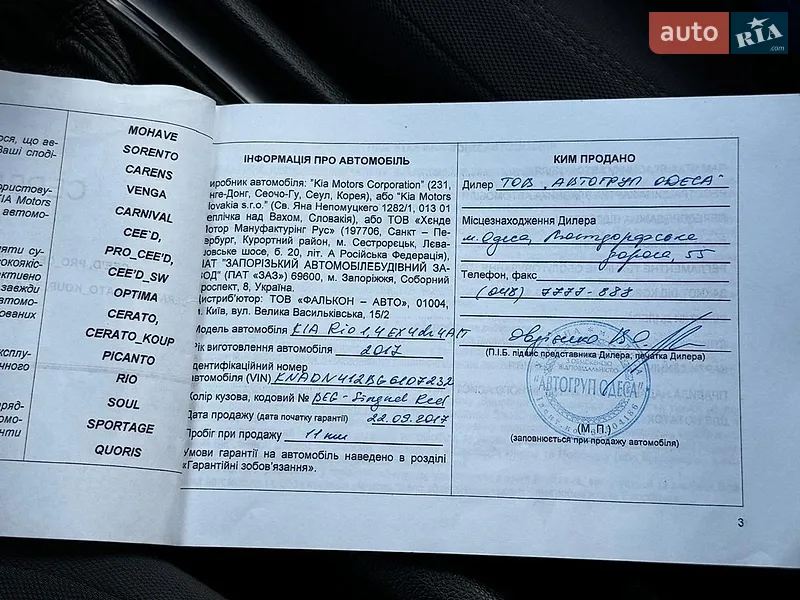 auto RIA .com
ося, що ав-
Ваші споді-
ристову-
KIA Motors
автомо-
яти су-
активно
завжди
втомо-
експлу-
MOHAVE
SORENTO
CARENS
VENGA
CARNIVAL
CEE'D,
PRO_CEE'D,
CEE'D_SW
OPTIMA
CERATO,
CERATO_KOUP
PICANTO
RIO
SOUL
SPORTAGE
QUORIS
ІНФОРМАЦІЯ ПРО АВТОМОБІЛЬ
иробник автомобіля: "Kia Motors Corporation" (231,
нге-Донг, Сеочо-Гу, Сеул, Корея), або "Kia Motors
lovakia s.r.o." (Св. Яна Непомуцкего 1282/1, 013 01
еплічка над Вахом, Словакія), або ТОВ «Хєнде
Мотор Мануфактурінг Рус» (197706, Санкт – Пе-
ербург, Курортний район, м. Сестрорєцьк, Лєва-
овське шосе, б. 20, літ. А Російська Федерація),
ПАТ "ЗАПОРІЗЬКИЙ АВТОМОБІЛЕБУДІВНИЙ ЗА-
ВОД" (ПАТ «ЗАЗ») 69600, м. Запоріжжя, Соборний
роспект, 8, Україна.
Дистриб'ютор: ТОВ «ФАЛЬКОН – АВТО», 01004,
м. Київ, вул. Велика Васильківська, 15/2
Модель автомобіля KIA Rio 1,4 EX 4dr 4AT
Рік виготовлення автомобіля 2017
Ідентифікаційний номер
автомобіля (VIN) KNADN412BG6107232
Колір кузова, кодовий № BEG - Singnal Red
Дата продажу (дата початку гарантії) 22.09.2017
Пробіг при продажу 11 км
Умови гарантії на автомобіль наведено в розділі
«Гарантійні зобов'язання».
КИМ ПРОДАНО
Дилер ТОВ "АВТОГРУП ОДЕСА"
Місцезнаходження Дилера
м. Одеса,
дорога, 55
Телефон, факс
(048) 7777-888
(П.І.Б. підпис представника Дилера, печатка Дилера)
"АВТОГРУП ОДЕСА"
(М. П.)
(заповнюється при продажу автомобіля)
3